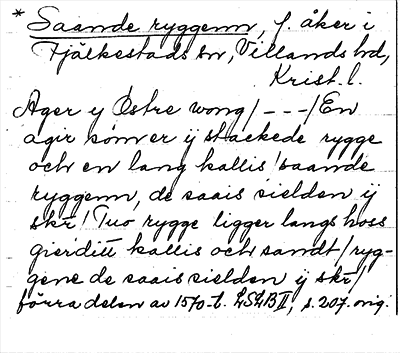 * Saande ryggenn, f. åker i
Fjälkestads sn, Villands hd,
Krist. l.
Ager ÿ Østre wong/---/En
agir som er ÿ stackede rygge
och en lang kallis/saande
ryggenn, de saais sielden ÿ
skr/Tuo rygge ligger langs hoss
gierditt kallis och sandt/ryg-
gene de saais sielden ÿ skr/
förra delen av 1570-t. LSLB II, s. 207. orig.